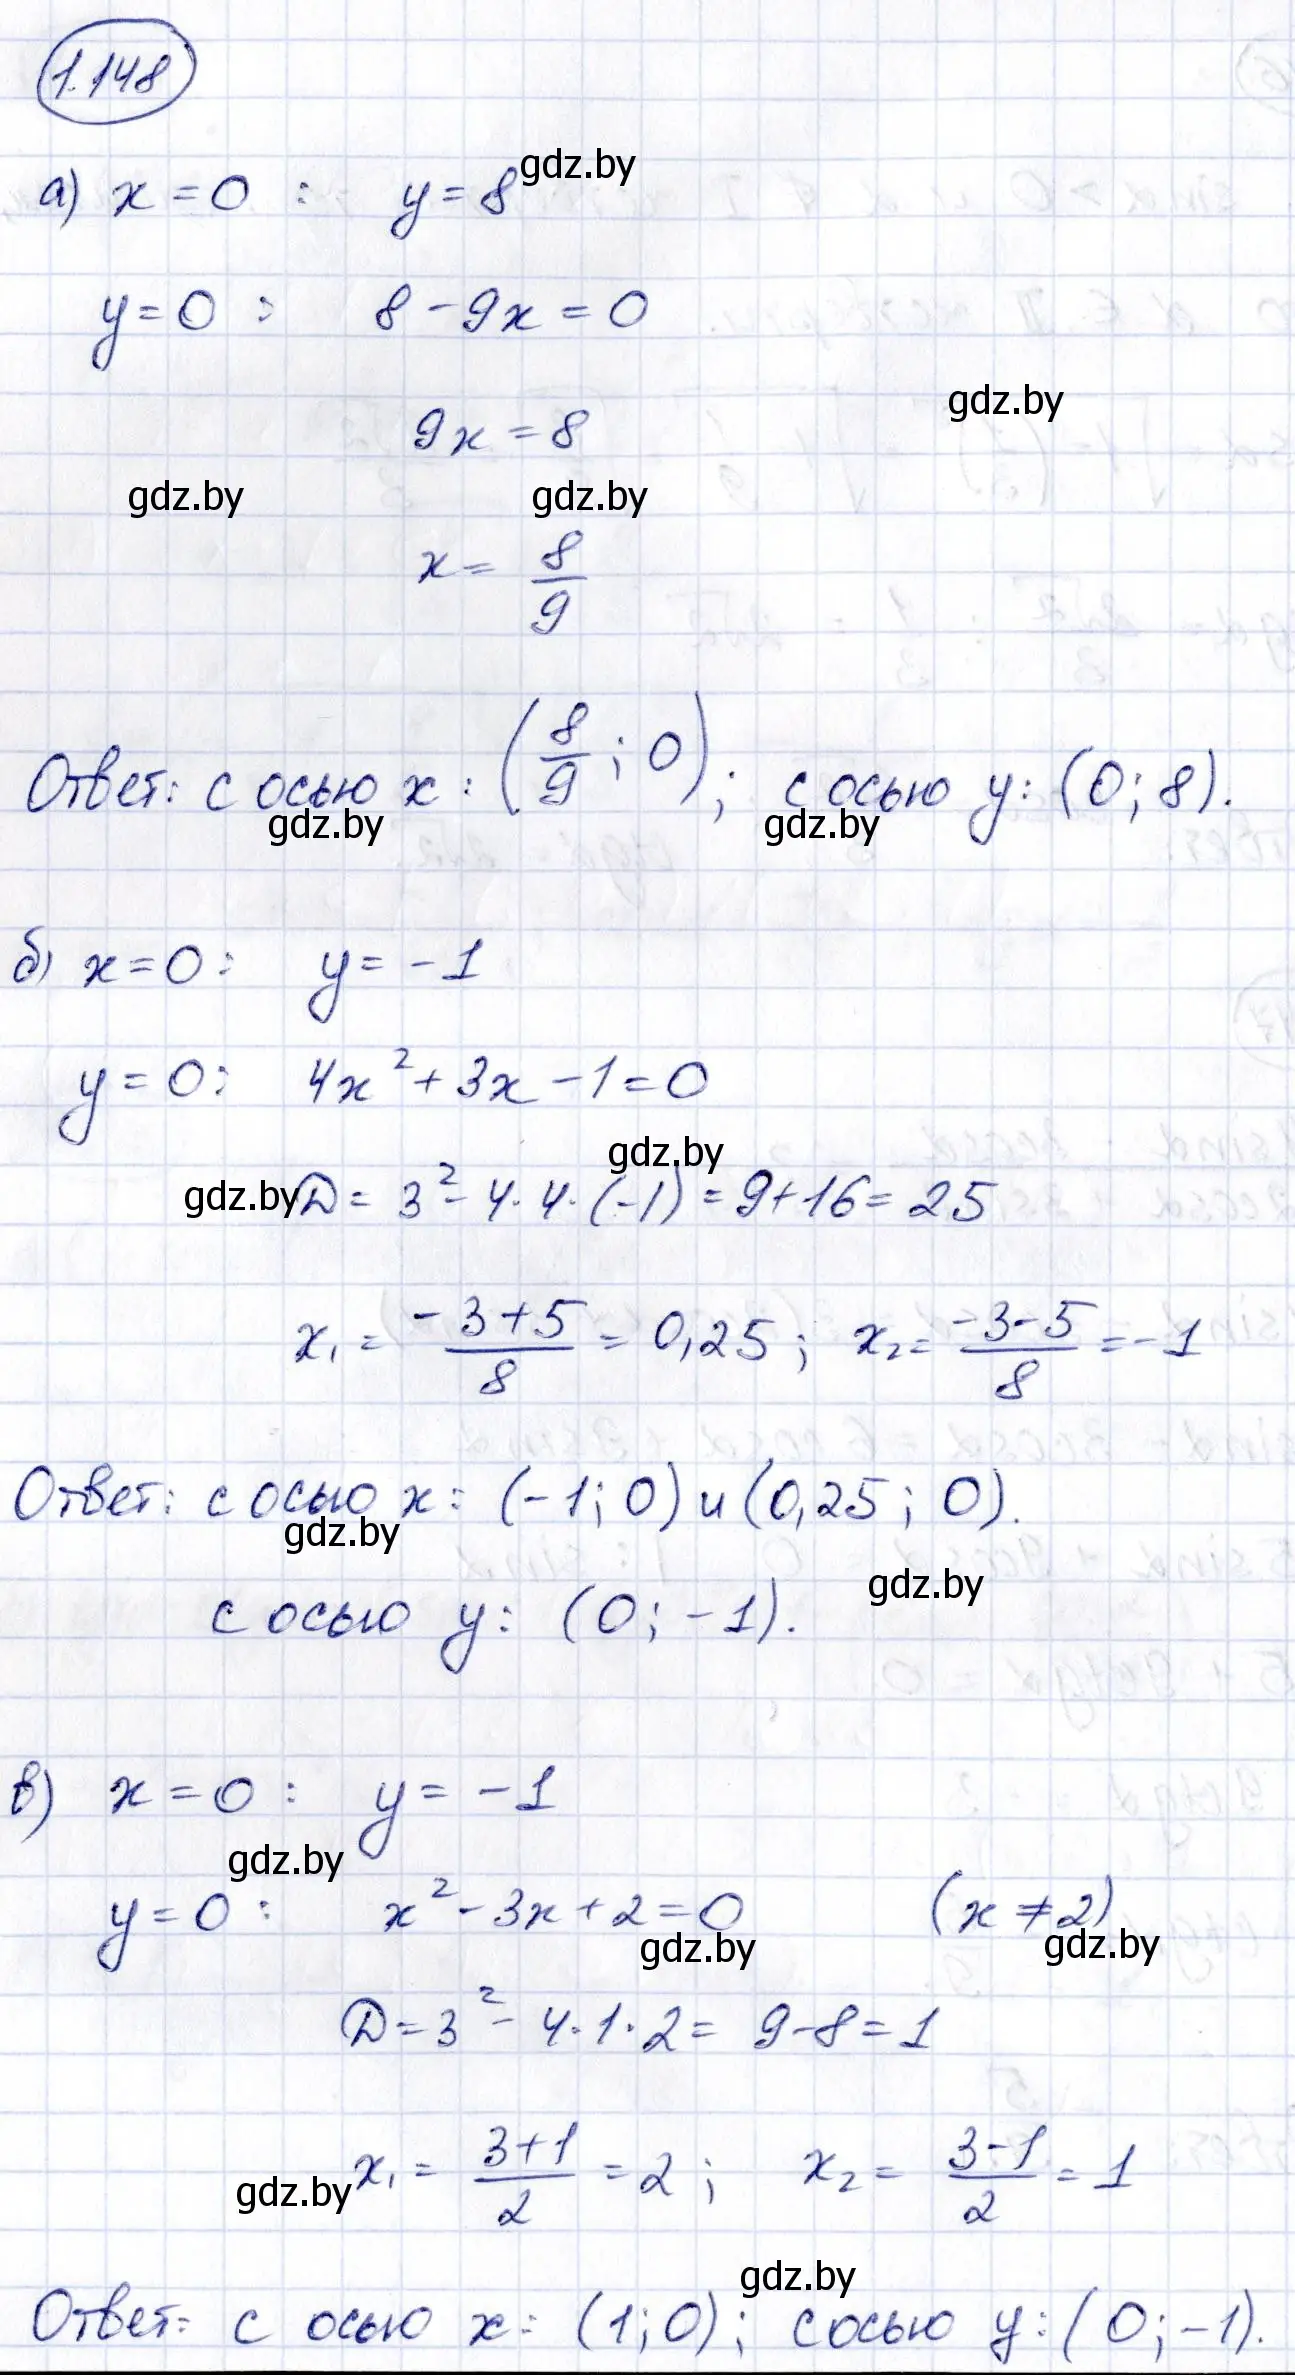 1.148
gdz.by
а) x = 0 : y = 8
y = 0 : 8 - 9x = 0
gdz.by
9x = 8
gdz.by gdz.by
x = 8/9
Ответ: с осью x : (8/9 ; 0) ; с осью y: (0 ; 8).
gdz.by gdz.by
б) x = 0 : y = -1
y = 0 : 4x² + 3x - 1 = 0
gdz.by
gdz.by D = 3² - 4·4·(-1) = 9 + 16 = 25
x₁ = (-3+5)/8 = 0,25 ; x₂ = (-3-5)/8 = -1
Ответ: с осью x : (-1 ; 0) и (0,25 ; 0).
gdz.by
gdz.by
с осью y : (0 ; -1).
в) x = 0 : y = -1
gdz.by
y = 0 : x² - 3x + 2 = 0 (x ≠ 2)
gdz.by gdz.by
D = 3² - 4·1·2 = 9 - 8 = 1
x₁ = (3+1)/2 = 2 ; x₂ = (3-1)/2 = 1
gdz.by
gdz.by
Ответ: с осью x : (1 ; 0) ; с осью y : (0 ; -1).